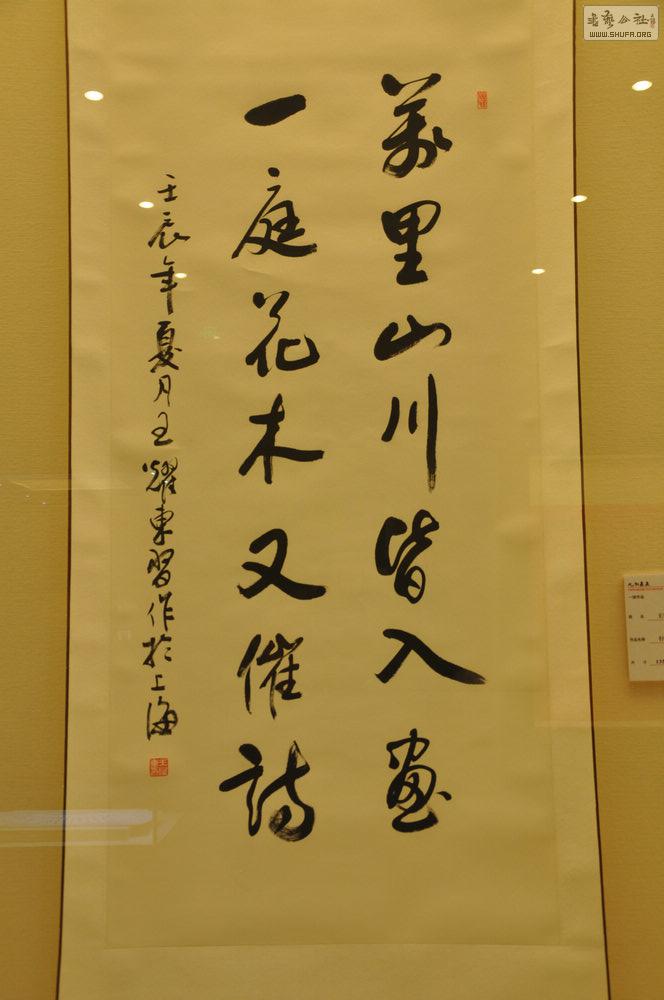 萬里山川皆入畫
一庭花木又催詩
壬辰年夏月王耀東習作於上海
书艺公社
WWW.SHUFA.ORG